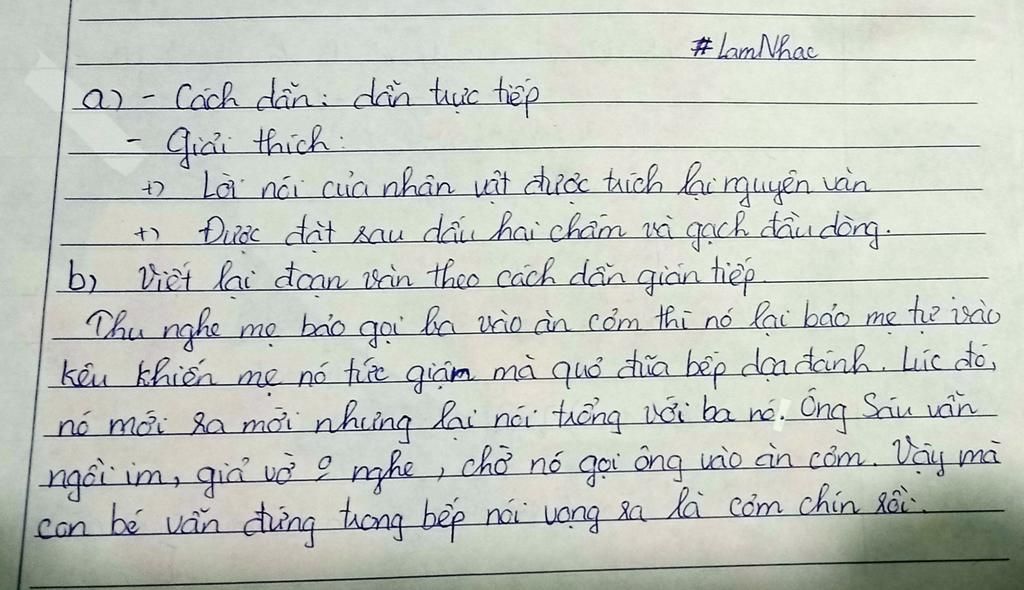 #LamNhac
a) - Cách dẫn: dẫn trực tiếp
- Giải thích:
+) Lời nói của nhân vật được trích lại nguyên văn
+) Được đặt sau dấu hai chấm và gạch đầu dòng.
b) Viết lại đoạn văn theo cách dẫn gián tiếp
Thu nghe mẹ bảo gọi ba vào ăn cơm thì nó lại bảo mẹ tự vào
kêu khiến mẹ nó tức giận mà quơ đũa bếp dọa đánh. Lúc đó,
nó mới ra mời nhưng lại nói trổng với ba nó. Ông Sáu vẫn
ngồi im, giả vờ 0 nghe, chờ nó gọi ông vào ăn cơm. Vậy mà
con bé vẫn đứng trong bếp nói vọng ra là cơm chín rồi.